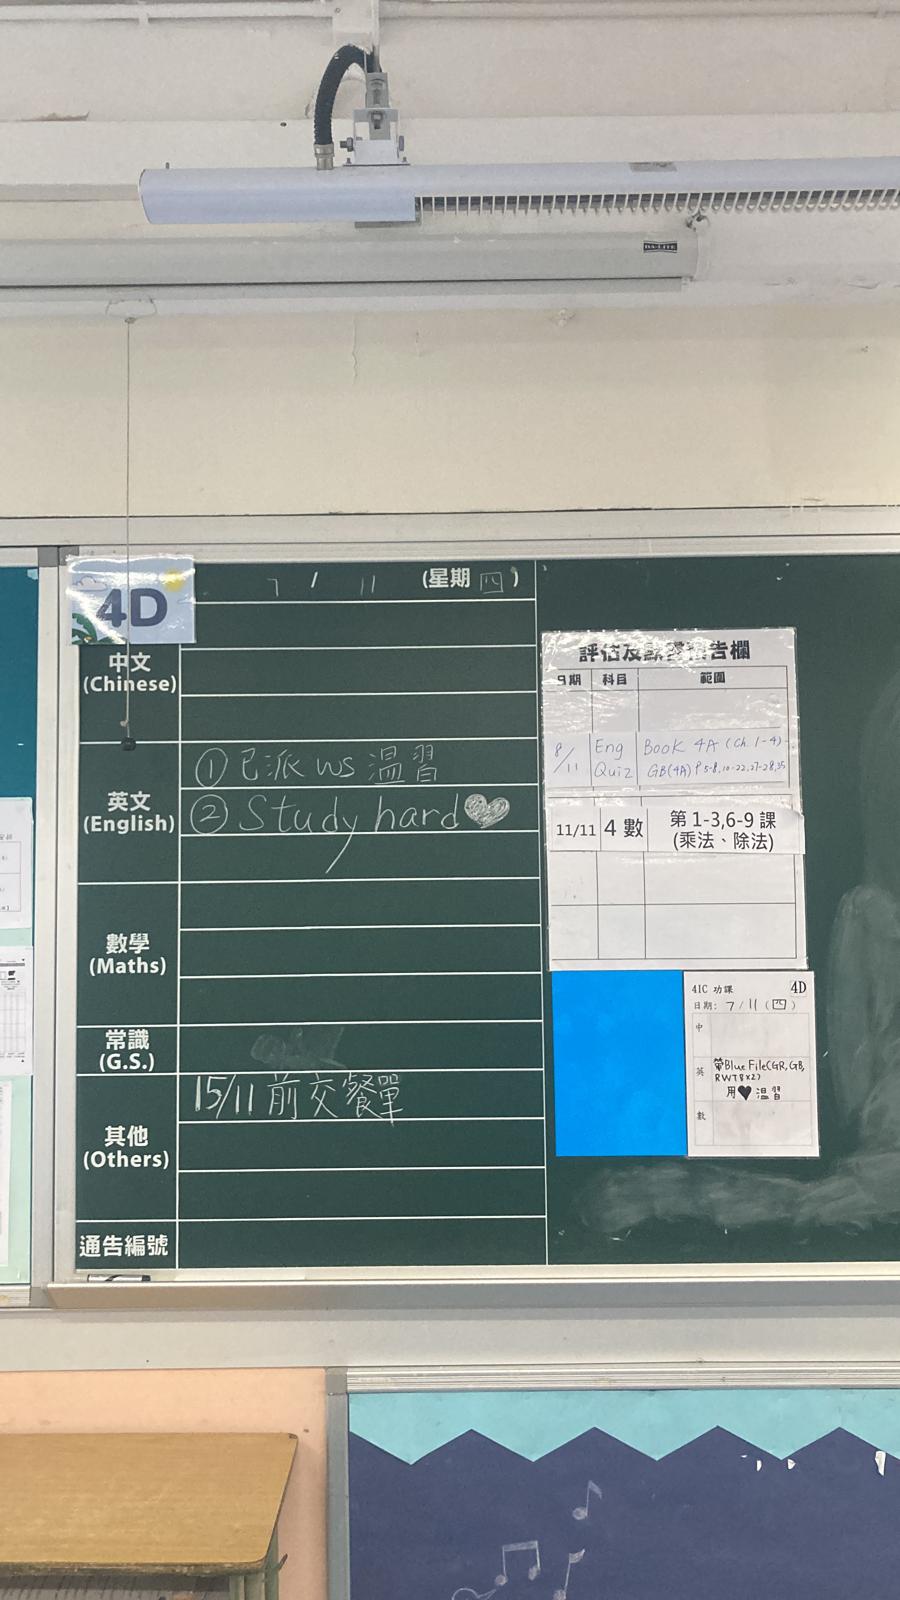 BA-LITE
4D
7 / 11 (星期 四)
中文
(Chinese)
英文
(English)
① 已派 ws 溫習
② Study hard♥
數學
(Maths)
常識
(G.S.)
其他
(Others)
15/11 前交餐單
通告編號
評估及 告欄
日期 科目 範圍
8/11 Eng Quiz Book 4A (Ch. 1-4)
GB(4A) P 5-8, 10-22, 27-28, 35
11/11 4 數 第 1-3,6-9 課
(乘法、除法)
4IC 功課 4D
日期: 7/11 (四)
中
英 帶Blue File(GR, GB,
RWTB×2)
用♥溫習
數